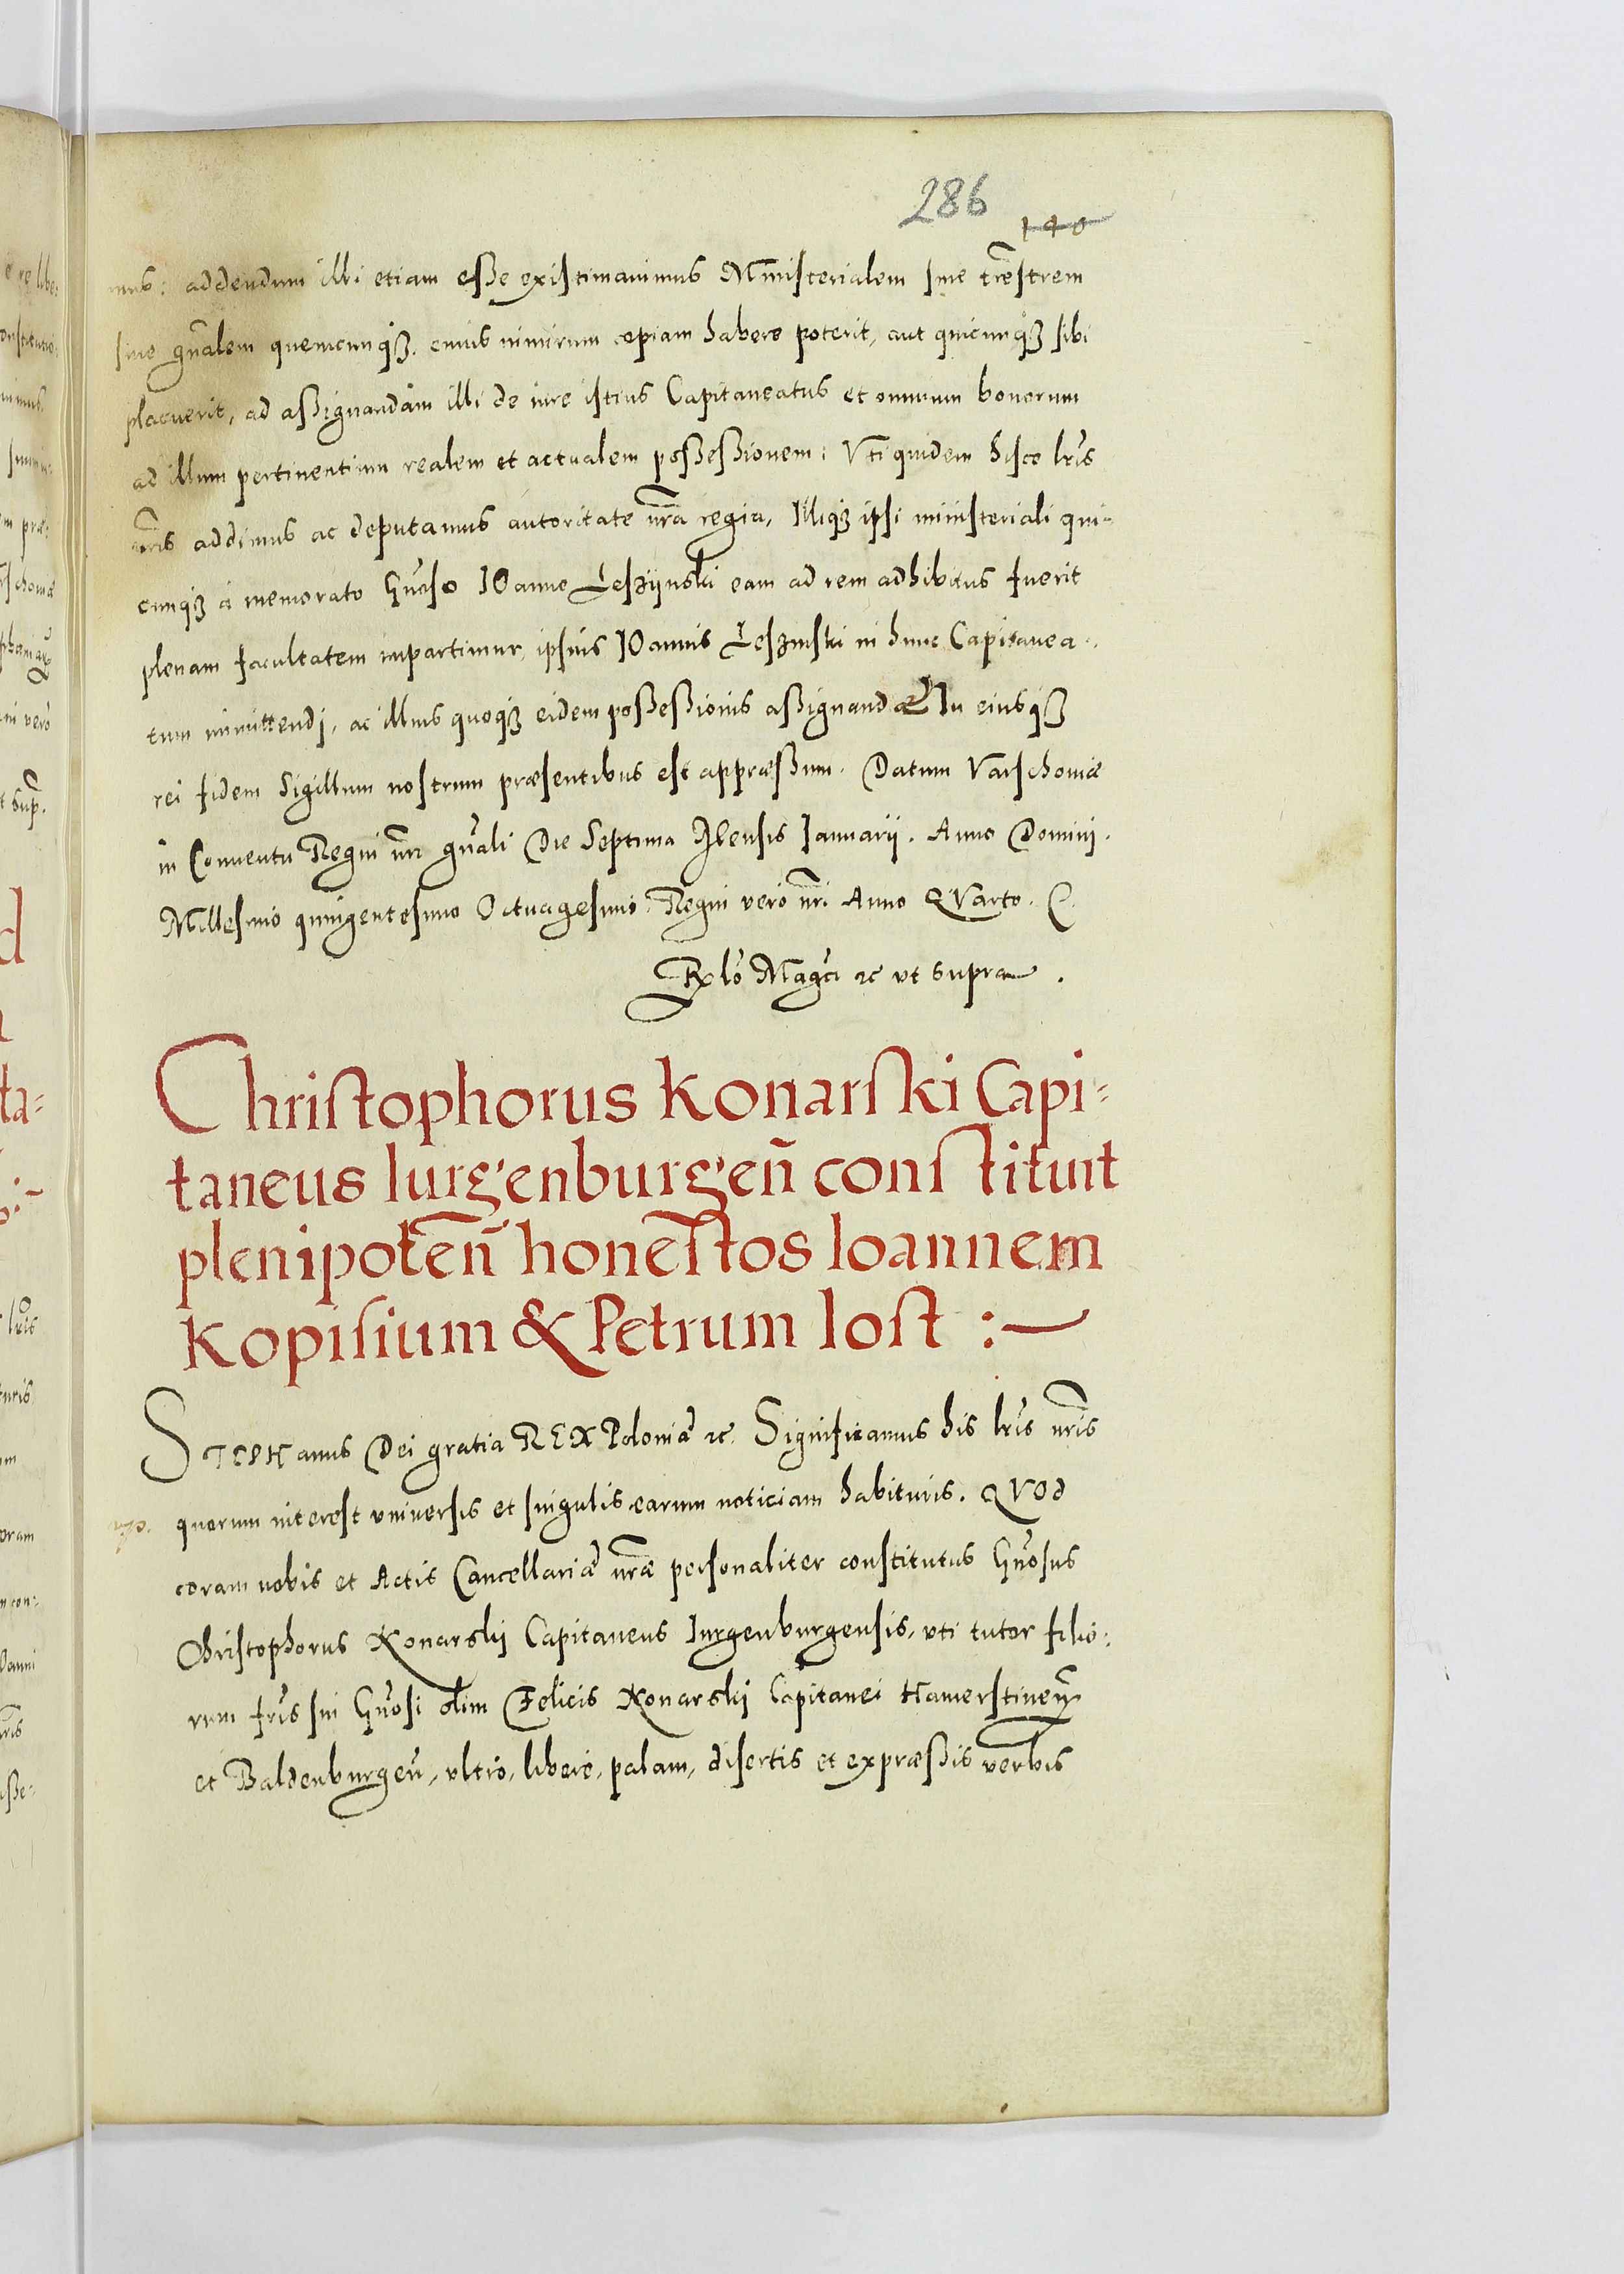 286
140
mus: addendum illi etiam esse existimavimus Ministerialem sive trēstrem
sive gnālem quemcunqȝ cuius nimirum copiam habere poterit, aut quicunqȝ sibi
placuerit, ad assignandam illi de iure istius Capitaneatus et omnium bonorum
ad illum pertinentium realem et actualem possessionem: Vti quidem hisce lrīs
nrīs addimus ac deputamus autoritate nrā regia, Illiqȝ ipsi ministeriali qui-
cunqȝ à memorato Gnōso IOanne Leszijnski eam ad rem adhibitus fuerit
plenam facultatem impartimur, ipsius IOannis Leszinski in hunc Capitanea-
tum immittendi, ac illius quoqȝ eidem possessionis assignandæ In eiusqȝ
rei fidem Sigillum nostrum præsentibus est appræssum. Datum Varschoviæ
in Conventu Regni nrī gnāli Die Septima Mensis Ianuarii. Anno Domini.
Millesimo quingentesimo Octuagesimo. Regni vero nrī Anno QVarto.
Rlō Magcī ꝛc ut supra.
Christophorus Konarski Capi-
taneus Iurgenburgen̄ constituit
plenipoten̄ honestos Ioannem
Kopisium & Petrum Iost :—
STEPHanus Dei gratia REX Poloniæ ꝛc. Significamus his lrīs nrīs
quorum interest universis et singulis earum noticiam habituris. QVOd
coram nobis et Actis Cancellariæ nrǣ personaliter constitutus Gnōsus
Christophorus Konarskij Capitaneus Iurgenburgensis, uti tutor filio-
rum frīs sui Gnōsi olim Felicis Konarskij Capitanei Hamerstinen̄
et Baldenburgen̄, ultro, libere, palam, disertis et expræssis verbis